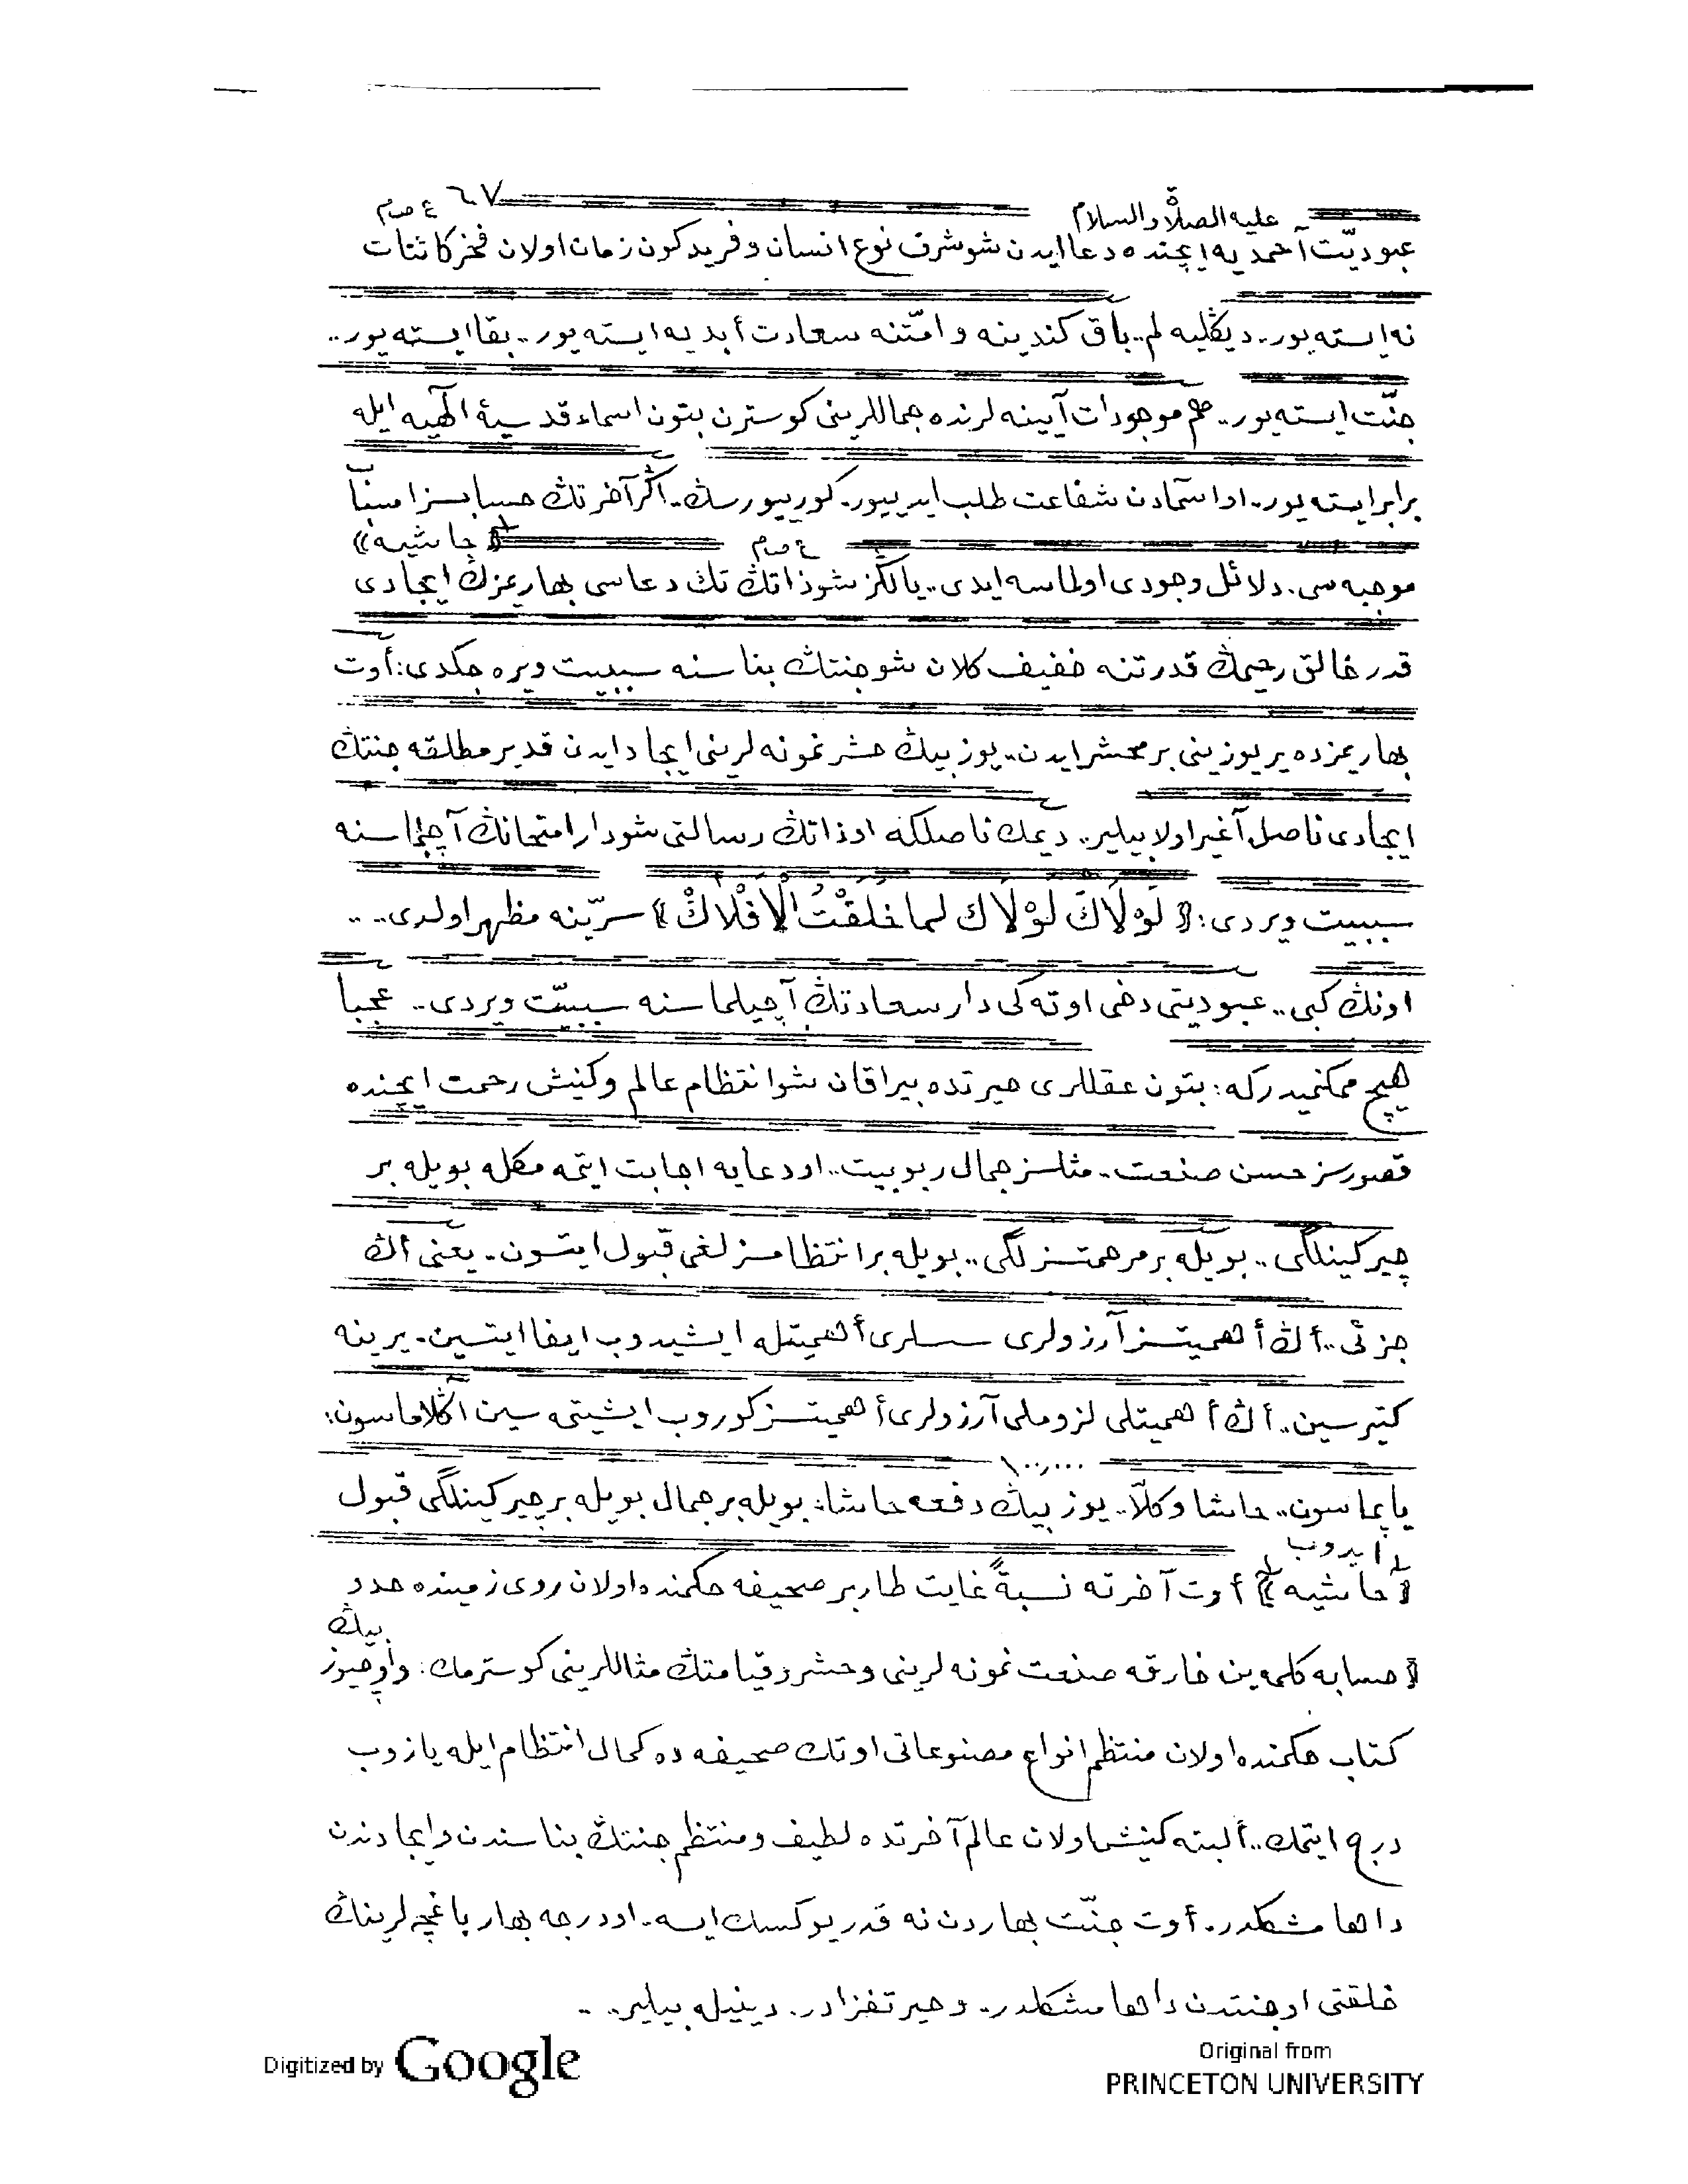 ٦٧
عليه الصلاة والسلام ع ص م
عبوديّت أحمديه ايچنده دعا ايدن شو شرف نوع انسان و فريد كون زمان اولان فخر كائنات
نه ايسته‌يور.. ديڭليه لم.. باق كندينه و امّتنه سعادت أبديه ايسته‌يور.. بقا ايسته‌يور..
جنّت ايسته‌يور.. هم موجودات آيينه لرنده جماللرينى كوسترن بتون اسماء قدسيۀ الٓهيه ايله
برابر ايسته‌يور.. او اسمادن شفاعت طلب ايدييور. كورييورسڭ. اڭر آخرتڭ حسابسز اسباب
ع ص م ﴿حاشيه﴾
موجبه سى. دلائل وجودى اولماسه ايدى.. يالڭز شو ذاتڭ تك دعاسى بهاريمزڭ ايجادى
قدر خالق رحيمڭ قدرتنه خفيف كلان شو جنتڭ بناسنه سببيت ويره جكدى: أوت
بهاريمزده ير يوزينى بر محشر ايدن.. يوز بيڭ حشر نمونه لرينى ايجاد ايدن قدير مطلقه جنتڭ
ايجادى ناصل آغير اولا بيلير.. ديمك ناصلكه او ذاتڭ رسالتى شو دار امتحانڭ آچيلماسنه
سببيت ويردى: ﴿لَوْلَاكَ لَوْلَاكَ لما خَلَقْتُ الْاَفْلَاكْ﴾ سرّينه مظهر اولدى.. ..
اونڭ كبى.. عبوديتى دخى اوته كى دار سعادتڭ آچيلماسنه سببيّت ويردى.. عجبا
هيچ ممكنميدركه: بتون عقللرى حيرتده بيراقان شو انتظام عالم و كنيش رحمت ايچنده
قصورسز حسن صنعت.. مثلسز جمال ربوبيت.. او دعايه اجابت ايتمه مكله بويله بر
چيركينلگى.. بويله بر مرحمتسزلگى.. بويله بر انتظامسزلغى قبول ايتسون. يعنى أڭ
جزئى.. أڭ أهميتسز آرزولرى سسلرى أهميتله ايشيدوب ايفا ايتسين. يرينه
كتيرسين.. أڭ أهميتلى لزوملى آرزولرى أهميتسز كوروب ايشيتمه سين اڭلاماسون:
١٠٠,٠٠٠
يا پماسون.. حاشا و كلّا.. يوز بيڭ دفعه حاشا: بويله بر جمال بويله بر چيركينلگى قبول
ايدوب
﴿حاشيه﴾ أوت آخرته نسبةً غايت طار بر صحيفه حكمنده اولان روى زمينده حدو
بيڭ
حسابه كلمه ين خارقه صنعت نمونه لرينى و حشر و قيامتڭ مثاللرينى كوسترمك: و اوچيوز
كتاب حكمنده اولان منتظم انواع مصنوعاتى او تك صحيفه ده كمال انتظام ايله يازوب
درج ايتمك.. ألبته كنيش اولان عالم آخرتده لطيف و منتظم جنتڭ بناسندن و ايجادندن
داها مشكلدر. أوت جنّت بهاردن نه قدر يوكسك ايسه. او درجه بهار باغچه لرينڭ
خلقتى او جنتدن داها مشكلدر. و حيرتفزادر. دينيله بيلير.. -
Digitized by Google
Original from
PRINCETON UNIVERSITY